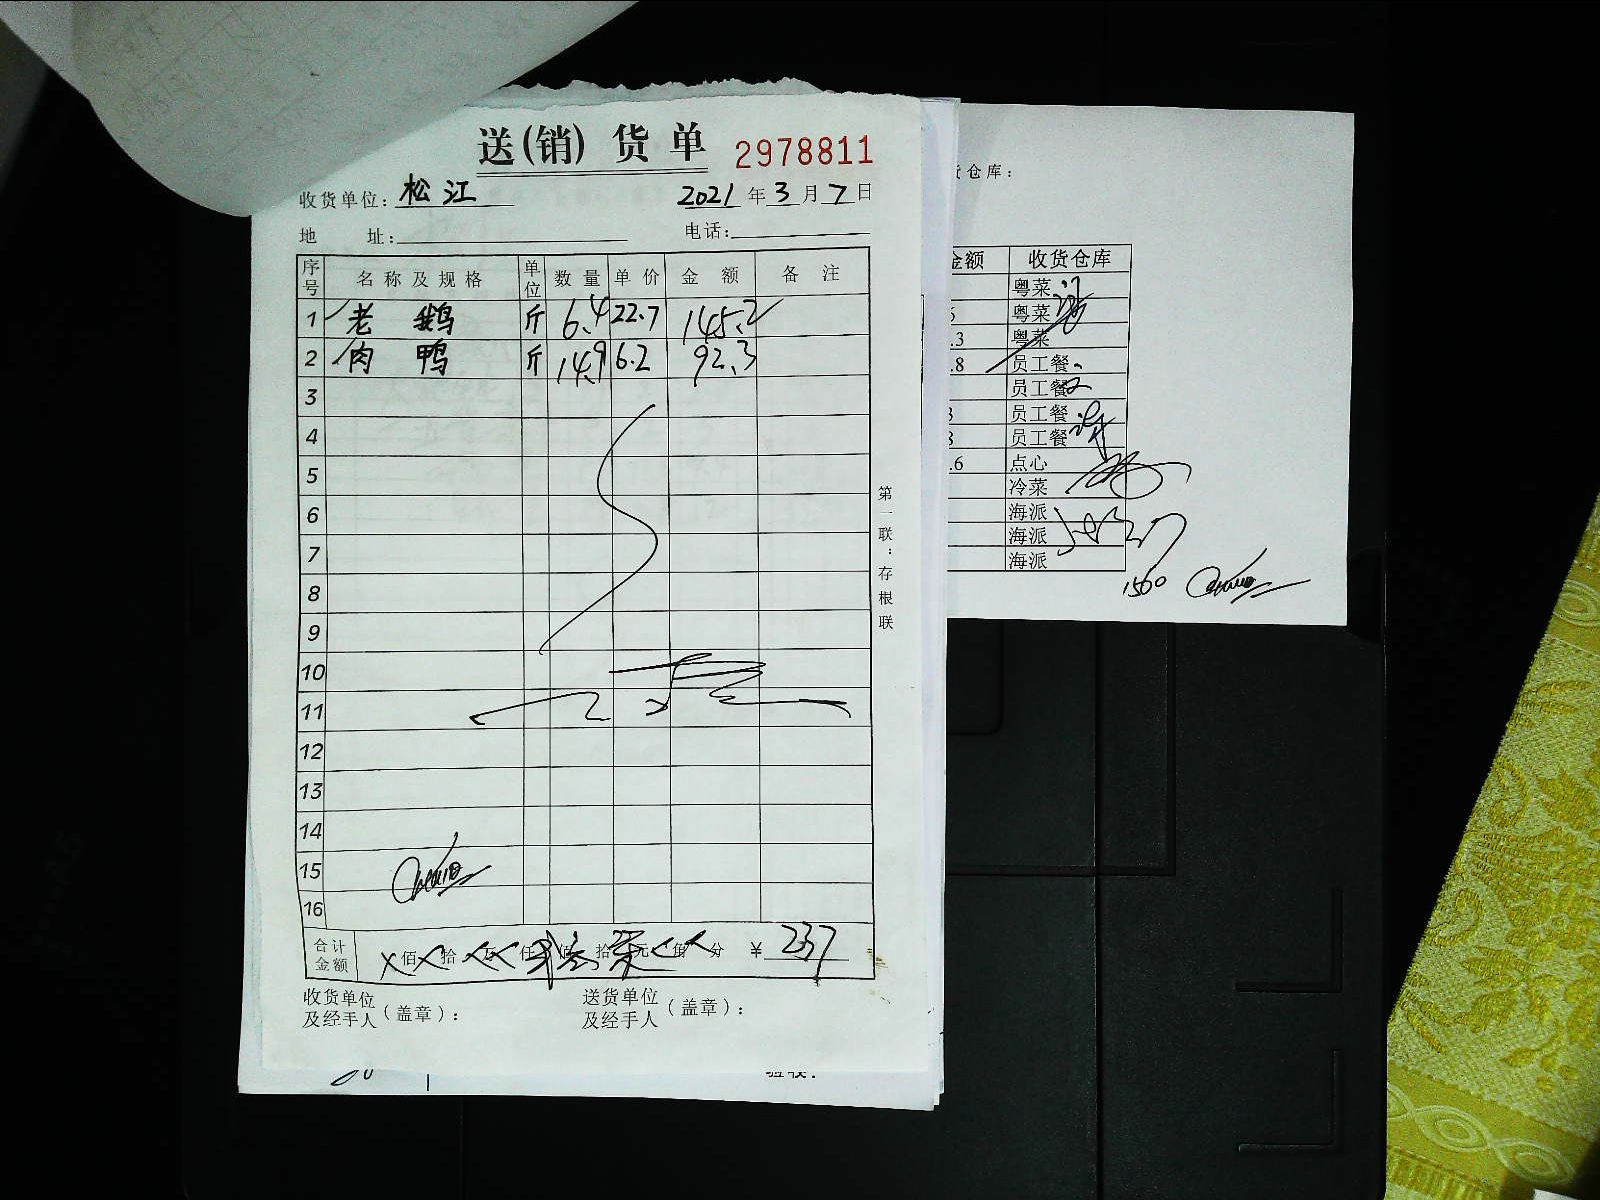 送(销)货单 2978811
收货单位: 松江 2021年3月7日
地 址: 电话:
序号 名称及规格 单位 数量 单价 金额 备注
1 老鹅 斤 6.4 22.7 145.2
2 肉鸭 斤 14.9 6.2 92.3
3
4
5
6
7
8
9
10
11
12
13
14
15
16
合计金额 佰 拾 万 仟 佰 拾 元 角 分 ¥ 237
收货单位及经手人(盖章): 送货单位及经手人(盖章):
第一联:存根联
验收:
仓库:
金额 收货仓库
粤菜
粤菜
.3 粤菜
.8 员工餐
员工餐
员工餐
员工餐
.6 点心
冷菜
海派
海派
海派
1500